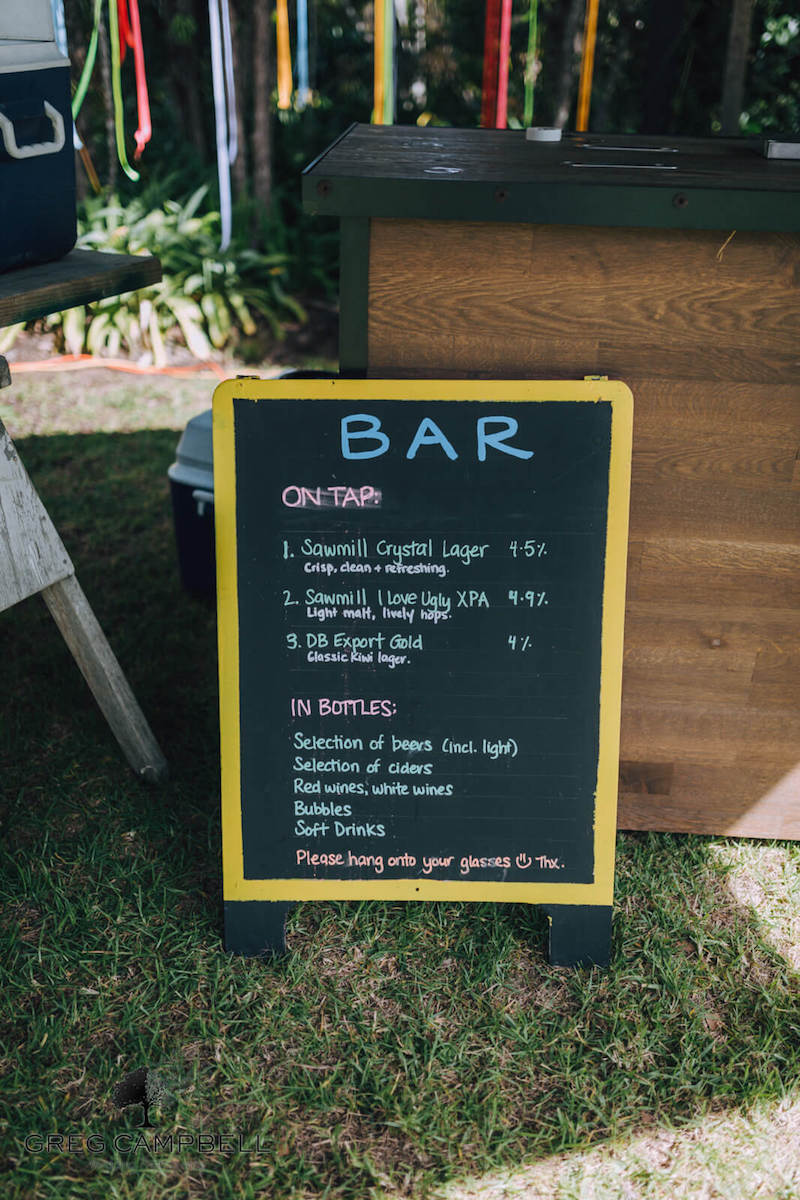 BAR
ON TAP:
1. Sawmill Crystal Lager 4.5%
Crisp, clean + refreshing.
2. Sawmill I Love Ugly XPA 4.9%
Light malt, lively hops.
3. DB Export Gold 4%
Classic Kiwi lager.
IN BOTTLES:
Selection of beers (incl. light)
Selection of ciders
Red wines, white wines
Bubbles
Soft Drinks
Please hang onto your glasses Thx.
GREG CAMPBELL